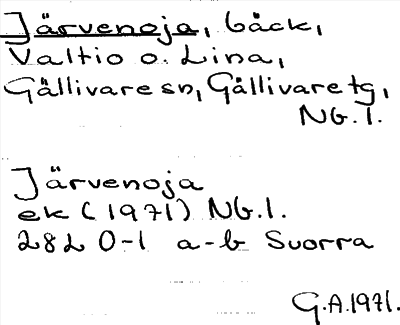 Järvenoja, bäck,
Valtio o. Lina,
Gällivare sn, Gällivare tg,
Nb. l.
Järvenoja
ek (1971) Nb. l.
28L 0-1 a-b Suorra
G.A. 1971.